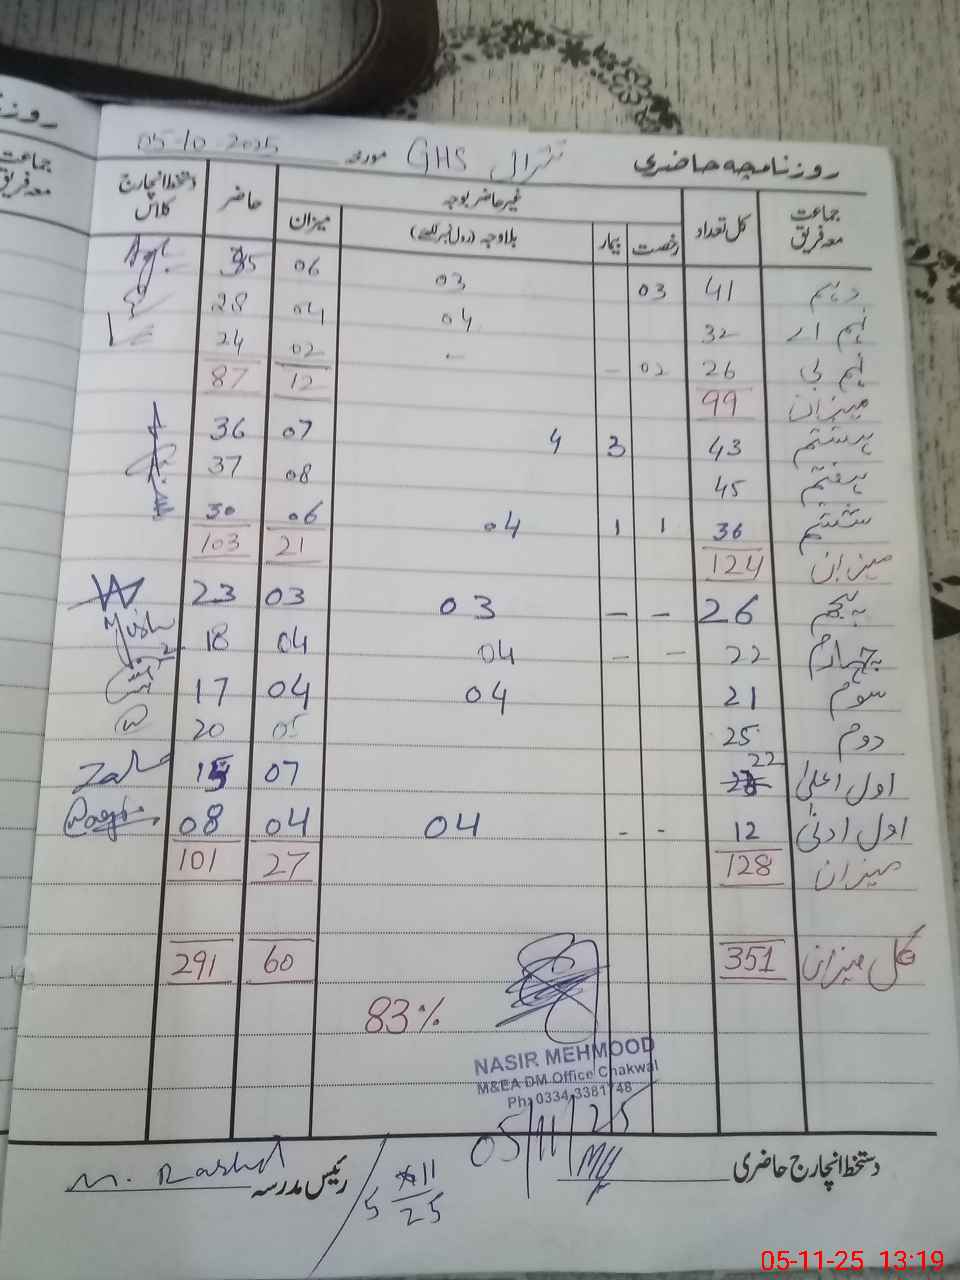 روزنامچہ حاضری GHS تترال مورخہ 05-10 2025
جماعت معہ فریق کل تعداد غیر حاضر بوجہ حاضر دستخط انچارج کلاس
رخصت بیمار بلاوجہ (رول نمبر لکھیئے) میزان
دہم 41 03 03 06 35
نہم اے 32 04 04 28
نہم بی 26 02 - - 02 24
میزان 99 12 87
ہشتم 43 3 4 07 36
ہفتم 45 08 37
ششم 36 1 1 04 06 30
میزان 124 21 103
پنجم 26 - - 03 03 23
چہارم 22 - - 04 04 18
سوم 21 04 04 17
دوم 25 05 20
اول اعلیٰ 22 07 15
اول ادنیٰ 12 - - 04 04 08
میزان 128 27 101
کل میزان 351 60 291
83%
NASIR MEHMOOD
M&EA DM Office Chakwal
Ph: 0334-3381748
05/11/25
دستخط انچارج حاضری
رئیس مدرسہ M. Rashid
5/11/25
05-11-25 13:19